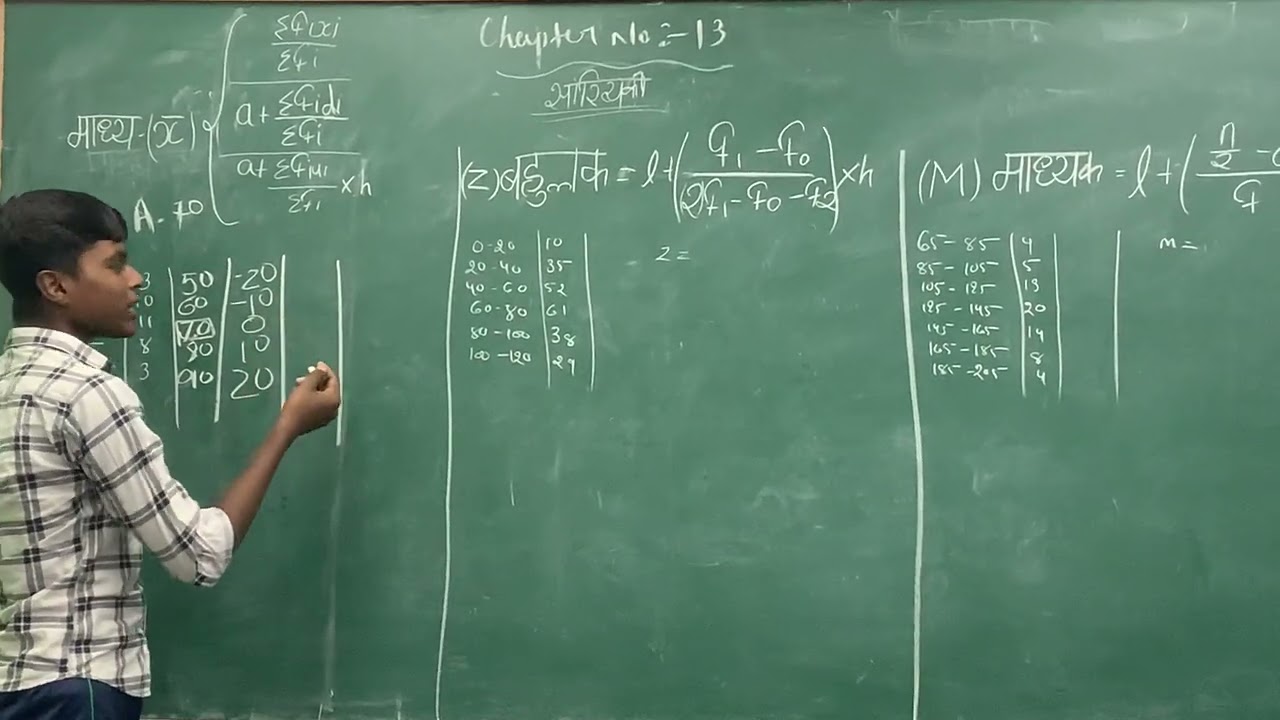 Chapter No :- 13
सांख्यिकी
माध्य-(x̄) { Σfixi / Σfi
a + Σfidi / Σfi
a + Σfiui / Σfi × h
A - 70
3 | 50 | -20
0 | 60 | -10
11 | 70 | 0
8 | 80 | 10
3 | 90 | 20
(Z) बहुलक = l + (f1 - f0 / 2f1 - f0 - f2) × h
0-20 | 10
20-40 | 35
40-60 | 52
60-80 | 61
80-100 | 38
100-120 | 29
Z =
(M) माध्यक = l + (n/2 - / f
65-85 | 4
85-105 | 5
105-125 | 13
125-145 | 20
145-165 | 14
165-185 | 8
185-205 | 4
M =